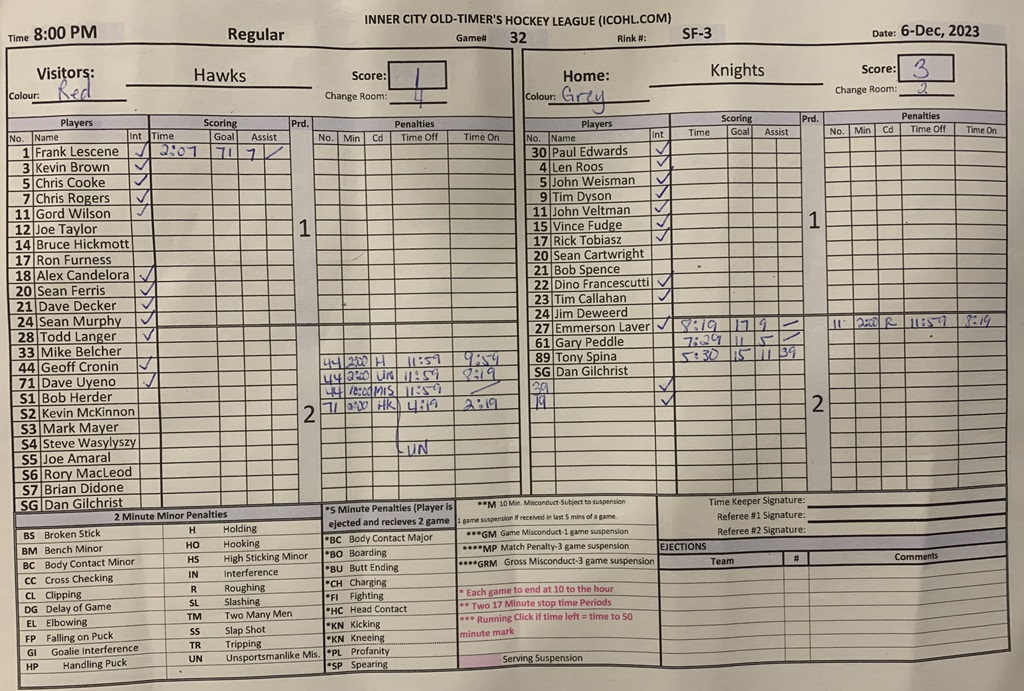 INNER CITY OLD-TIMER'S HOCKEY LEAGUE (ICOHL.COM)
Time 8:00 PM Regular Game# 32 Rink #: SF-3 Date: 6-Dec, 2023
Visitors: Hawks Score: 1
Colour: Red Change Room: 4
Players Scoring Prd. Penalties
No. Name Int Time Goal Assist No. Min Cd Time Off Time On
1 Frank Lescene ✓ 2:07 71 7 /
3 Kevin Brown ✓
5 Chris Cooke ✓
7 Chris Rogers ✓
11 Gord Wilson ✓
12 Joe Taylor
14 Bruce Hickmott
17 Ron Furness
18 Alex Candelora ✓
20 Sean Ferris ✓
21 Dave Decker ✓
24 Sean Murphy ✓
28 Todd Langer ✓
33 Mike Belcher
44 Geoff Cronin ✓
71 Dave Uyeno ✓
S1 Bob Herder
S2 Kevin McKinnon
S3 Mark Mayer
S4 Steve Wasylyszy
S5 Joe Amaral
S6 Rory MacLeod
S7 Brian Didone
SG Dan Gilchrist
1
2
44 2:00 H 11:59 9:59
44 2:00 UN 11:59 8:19
44 10:00 MIS 11:59 /
71 2:00 HK 4:19 2:19
UN
Home: Knights Score: 3
Colour: Grey Change Room: 2
Players Scoring Prd. Penalties
No. Name Int Time Goal Assist No. Min Cd Time Off Time On
30 Paul Edwards ✓
4 Len Roos ✓
5 John Weisman ✓
9 Tim Dyson ✓
11 John Veltman ✓
15 Vince Fudge ✓
17 Rick Tobiasz ✓
20 Sean Cartwright
21 Bob Spence
22 Dino Francescutti ✓
23 Tim Callahan ✓
24 Jim Deweerd
27 Emmerson Laver ✓ 8:19 17 9 – 11 2:00 R 11:59 8:19
61 Gary Peddle 7:29 11 5 –
89 Tony Spina 5:30 15 11 39
SG Dan Gilchrist
39 ✓
19 ✓
1
2
2 Minute Minor Penalties
BS Broken Stick H Holding
BM Bench Minor HO Hooking
BC Body Contact Minor HS High Sticking Minor
CC Cross Checking IN Interference
CL Clipping R Roughing
DG Delay of Game SL Slashing
EL Elbowing TM Two Many Men
FP Falling on Puck SS Slap Shot
GI Goalie Interference TR Tripping
HP Handling Puck UN Unsportsmanlike Mis.
*5 Minute Penalties (Player is
ejected and recieves 2 game
*BC Body Contact Major
*BO Boarding
*BU Butt Ending
*CH Charging
*FI Fighting
*HC Head Contact
*KN Kicking
*KN Kneeing
*PL Profanity
*SP Spearing
**M 10 Min. Misconduct-Subject to suspension
1 game suspension if received in last 5 mins of a game.
***GM Game Misconduct-1 game suspension
****MP Match Penalty-3 game suspension
****GRM Gross Misconduct-3 game suspension
* Each game to end at 10 to the hour
** Two 17 Minute stop time Periods
*** Running Click if time left = time to 50
minute mark
Serving Suspension
Time Keeper Signature:
Referee #1 Signature:
Referee #2 Signature:
EJECTIONS
Team # Comments